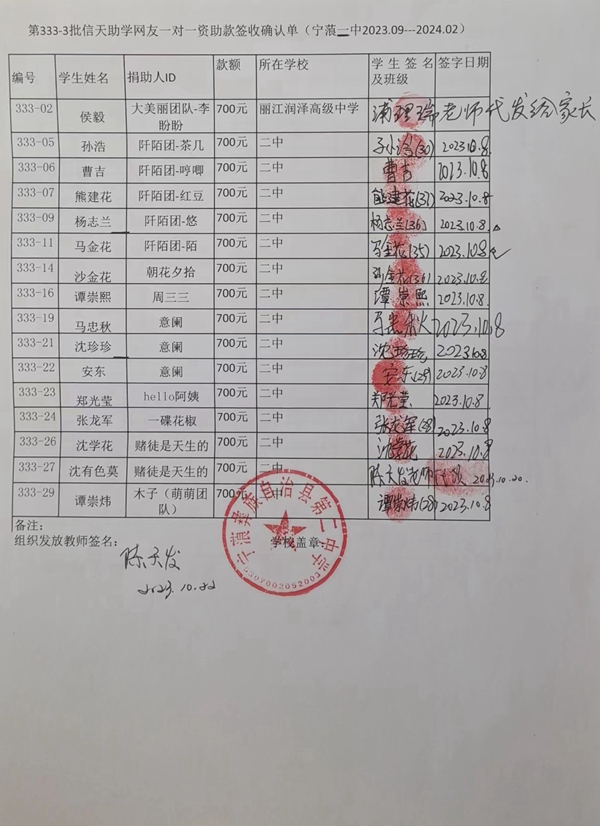 第333-3批信天助学网友一对一资助款签收确认单（宁蒗一中2023.09---2024.02）
编号 学生姓名 捐助人ID 款额 所在学校 学生签名及班级 签字日期
333-02 侯毅 大美丽团队-李盼盼 700元 丽江润泽高级中学 老师代发给家长
333-05 孙浩 阡陌团-茶几 700元 二中 2023.10.8
333-06 曹吉 阡陌团-哼唧 700元 二中 曹吉 2023.10.8
333-07 熊建花 阡陌团-红豆 700元 二中 熊建花(37) 2023.10.8
333-09 杨志兰 阡陌团-悠 700元 二中 杨志兰(36) 2023.10.8
333-11 马金花 阡陌团-陌 700元 二中 马金花(35) 2023.10.8
333-14 沙金花 朝花夕拾 700元 二中 沙金花 2023.10.8
333-16 谭崇熙 周三三 700元 二中 谭崇熙 2023.10.8
333-19 马忠秋 意阑 700元 二中 马忠秋 2023.10.8
333-21 沈珍珍 意阑 700元 二中 沈珍珍 2023.10.8
333-22 安东 意阑 700元 二中 安东(29) 2023.10.8
333-23 郑光莹 hello阿姨 700元 二中 郑光莹 2023.10.8
333-24 张龙军 一碟花椒 700元 二中 张龙军(28) 2023.10.8
333-26 沈学花 赌徒是天生的 700元 二中 沈学花 2023.10.8
333-27 沈有色莫 赌徒是天生的 700元 二中 陈天发老师代领 2023.10.20.
333-29 谭崇炜 木子（萌萌团队） 700元 二中 谭崇炜(28) 2023.10.8
备注：
组织发放教师签名： 学校盖章：
陈天发
2023.10.22
宁蒗彝族自治县第二中学